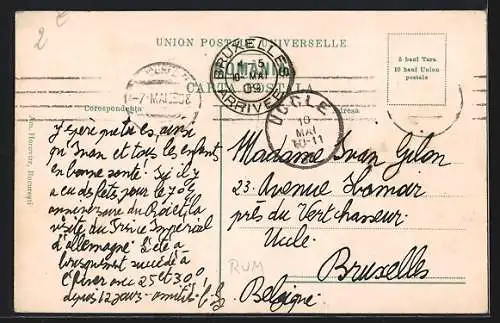 2 €
UNION POSTALE UNIVERSELLE
ROMANIA
CARTA POSTALA
Corespondența
Adresa
5 bani Tara
10 bani Union
postale
BRUXELLES
5
MAI
09
ARRIVEE
7 MAI
UCCLE
10
MAI
10-11
Am. Horovitz, Bucuresti
J'espère que tu es ainsi
qu'Ivan et tous les enfants
en bonne santé. Ici il y
a eu des fêtes pour le 70e
anniversaire du Roi et la
visite du Prince Impérial
d'allemagne. L'été a
brusquement succédé à
l'hiver avec 25 et 30°
depuis 12 jours - amitiés
Madame Ivan Gilon
23 Avenue Lamar
près du Vert chasseur
Uccle
Bruxelles
Belgique
RUM